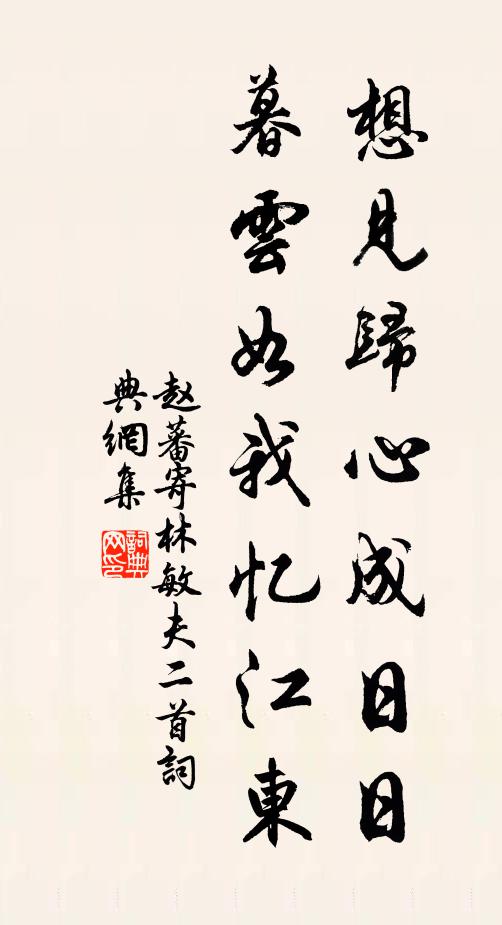 想見歸心成日日
暮雲如我忆江東
赵蕃寄林敏夫二首詞
典網集
詞典
网印